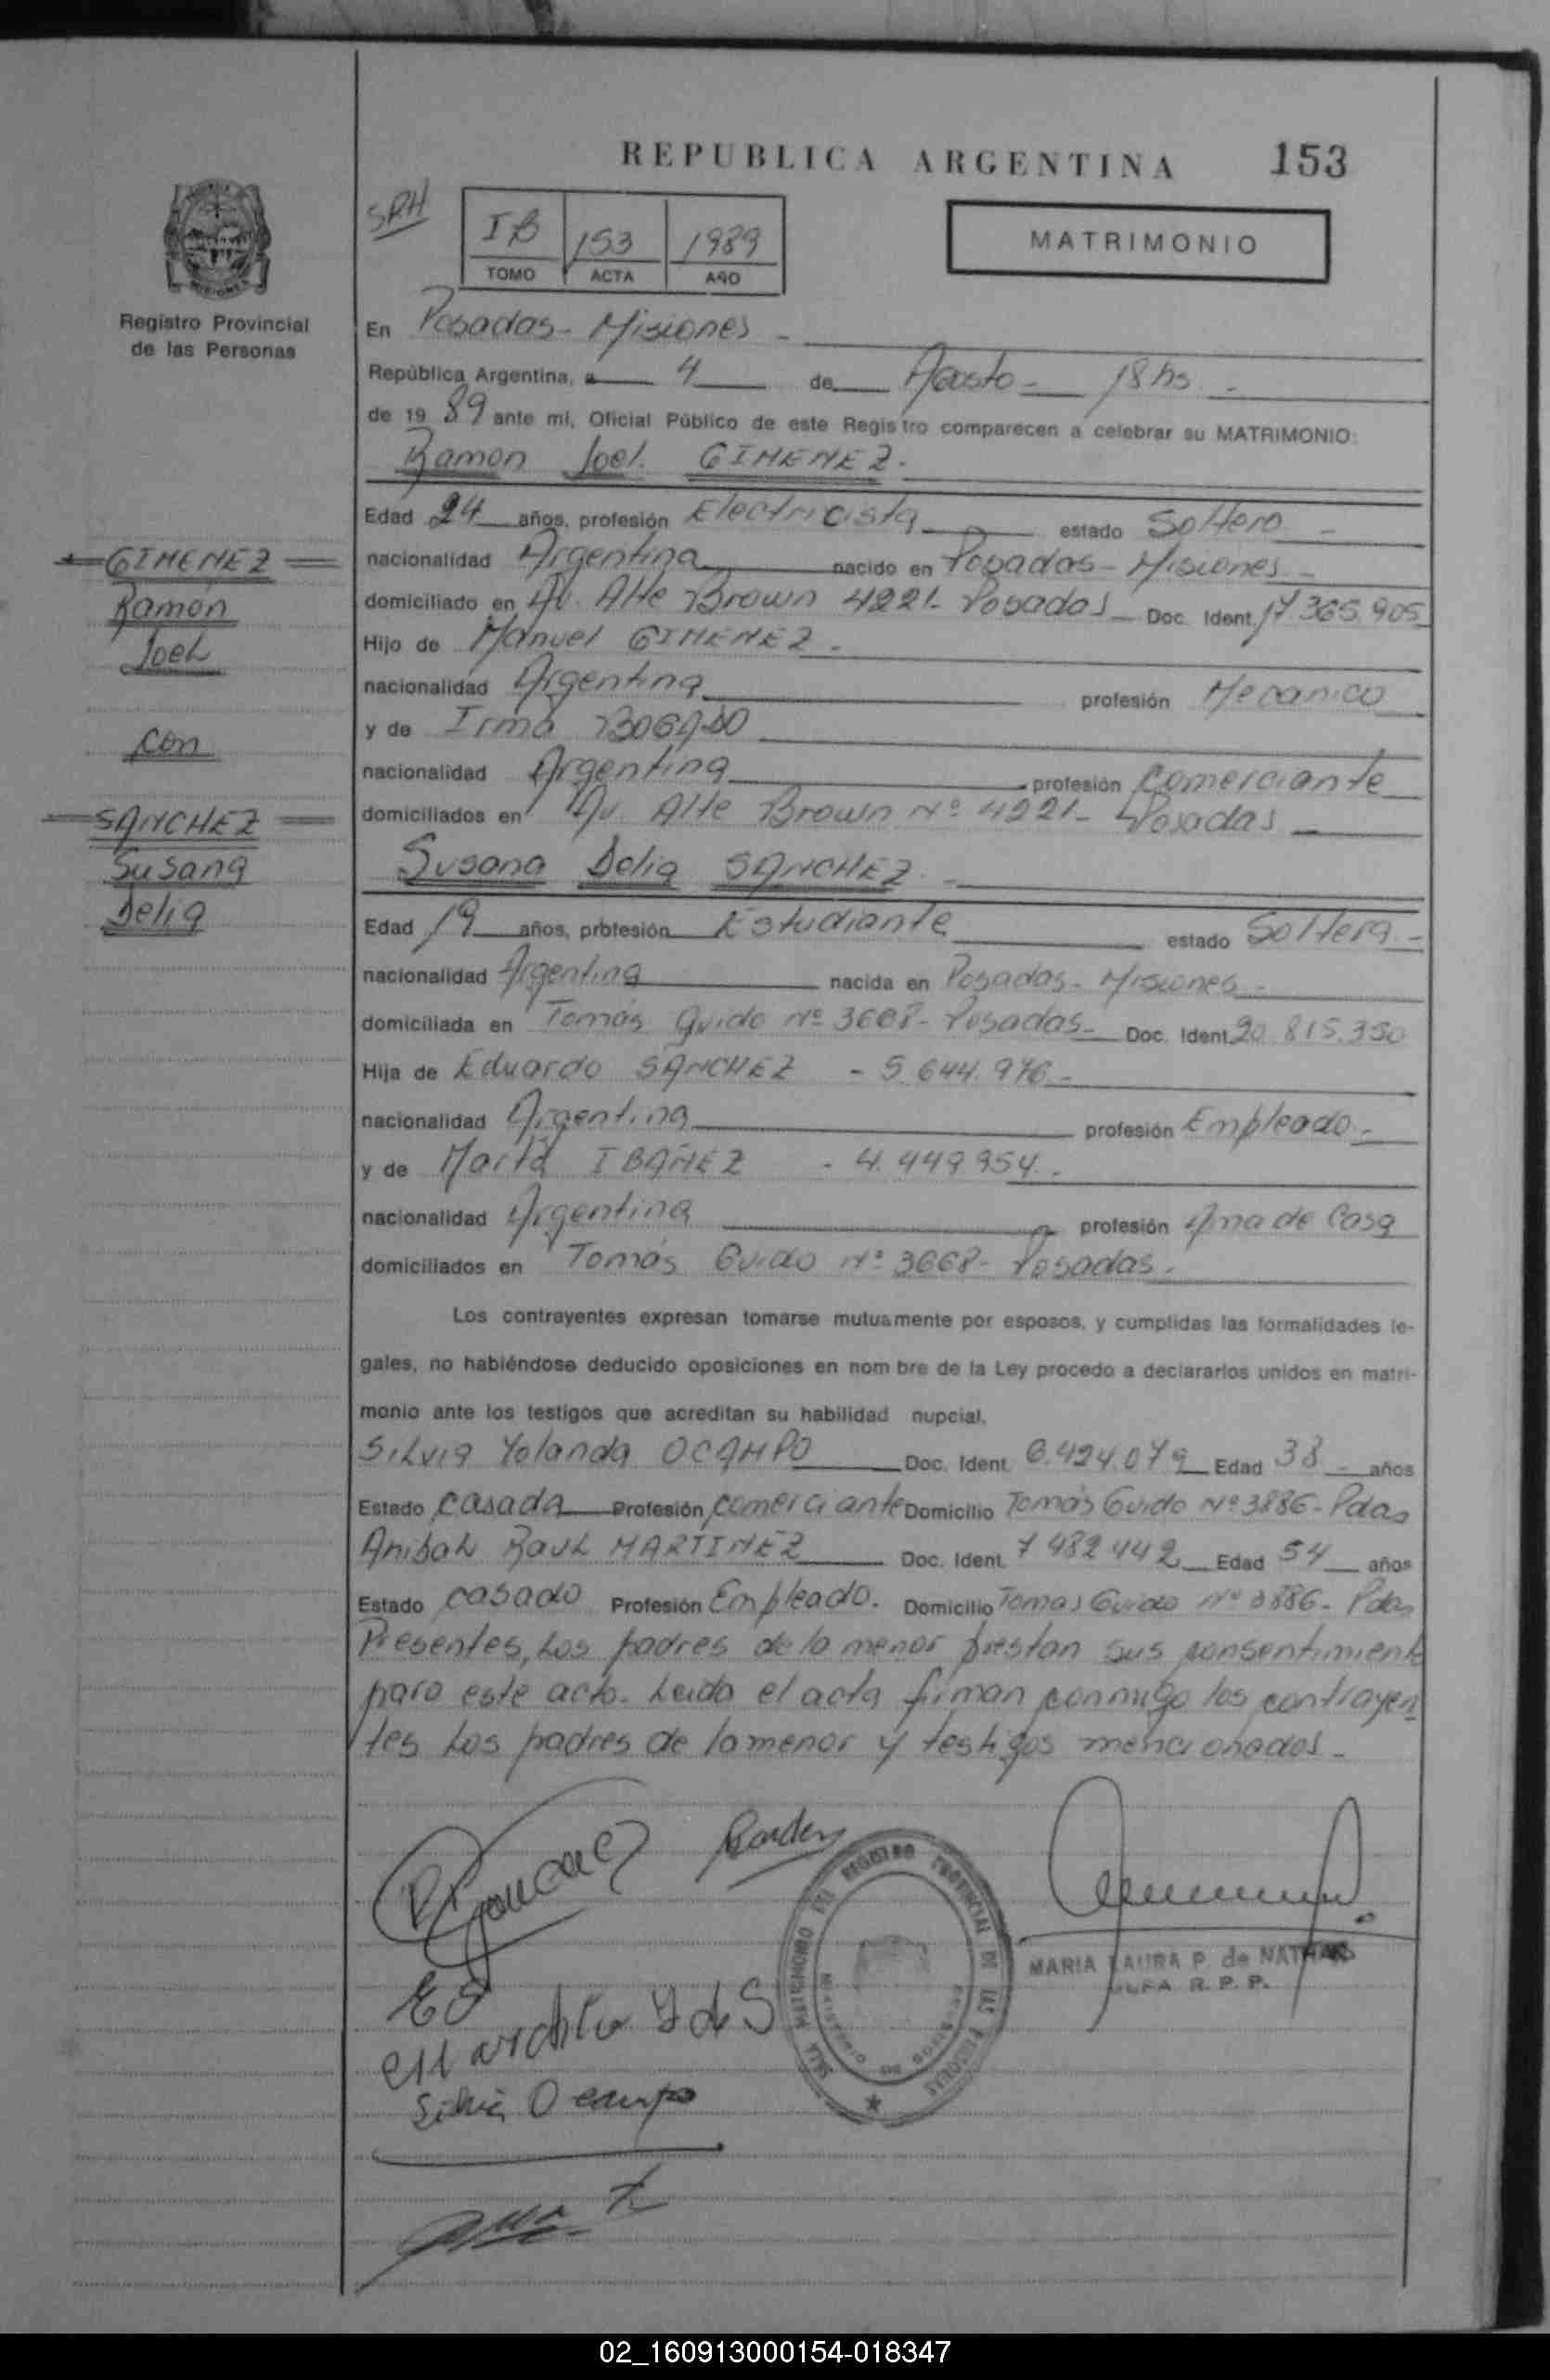 REPUBLICA ARGENTINA 153
SRH
IB 153 1989
TOMO ACTA AÑO
MATRIMONIO
MISIONES
Registro Provincial
de las Personas
En Posadas - Misiones -
República Argentina, a 4 de Agosto - 18 hs -
de 19 89 ante mí, Oficial Público de este Registro comparecen a celebrar su MATRIMONIO:
Ramon Joel GIMENEZ.
Edad 24 años, profesión Electricista estado Soltero -
nacionalidad Argentina nacido en Posadas - Misiones -
domiciliado en Av. Alte Brown 4221 - Posadas Doc. Ident. 17.365.905
Hijo de Manuel GIMENEZ -
nacionalidad Argentina profesión Mecanico
y de Irma
nacionalidad Argentina profesión Comerciante
domiciliados en Av. Alte Brown Nº 4221 - Posadas
GIMENEZ
Ramon
Joel
con
SANCHEZ
Susana
Delia
Susana Delia SANCHEZ -
Edad 19 años, profesión Estudiante estado Soltera -
nacionalidad Argentina nacida en Posadas - Misiones -
domiciliada en Tomás Guido Nº 3668 - Posadas - Doc. Ident. 20.815.350
Hija de Eduardo SANCHEZ - 5.644.976 -
nacionalidad Argentina profesión Empleado -
y de Marta IBAÑEZ - 4.449.954 -
nacionalidad Argentina profesión Ama de Casa
domiciliados en Tomás Guido Nº 3668 - Posadas.
Los contrayentes expresan tomarse mutuamente por esposos, y cumplidas las formalidades le-
gales, no habiéndose deducido oposiciones en nom bre de la Ley procedo a declararlos unidos en matri-
monio ante los testigos que acreditan su habilidad nupcial.
Silvia Yolanda OCAMPO Doc. Ident. 6.424.079 Edad 38 años
Estado casada Profesión comerciante Domicilio Tomás Guido Nº 3886 - Pdas
Anibal Raul MARTINEZ Doc. Ident. 7.482.442 Edad 54 años
Estado casado Profesión Empleado. Domicilio Tomas Guido Nº 3886 - Pdas
Presentes, Los padres de la menor prestan sus consentimiento
para este acto. Leida el acta firman conmigo los contrayen
tes Los padres de la menor y testigos mencionados -
REGISTRO PROVINCIAL DE LAS PERSONAS
MARIA LAURA P. de
JEFA R. P. P.
Silvia Ocampo
02_160913000154-018347